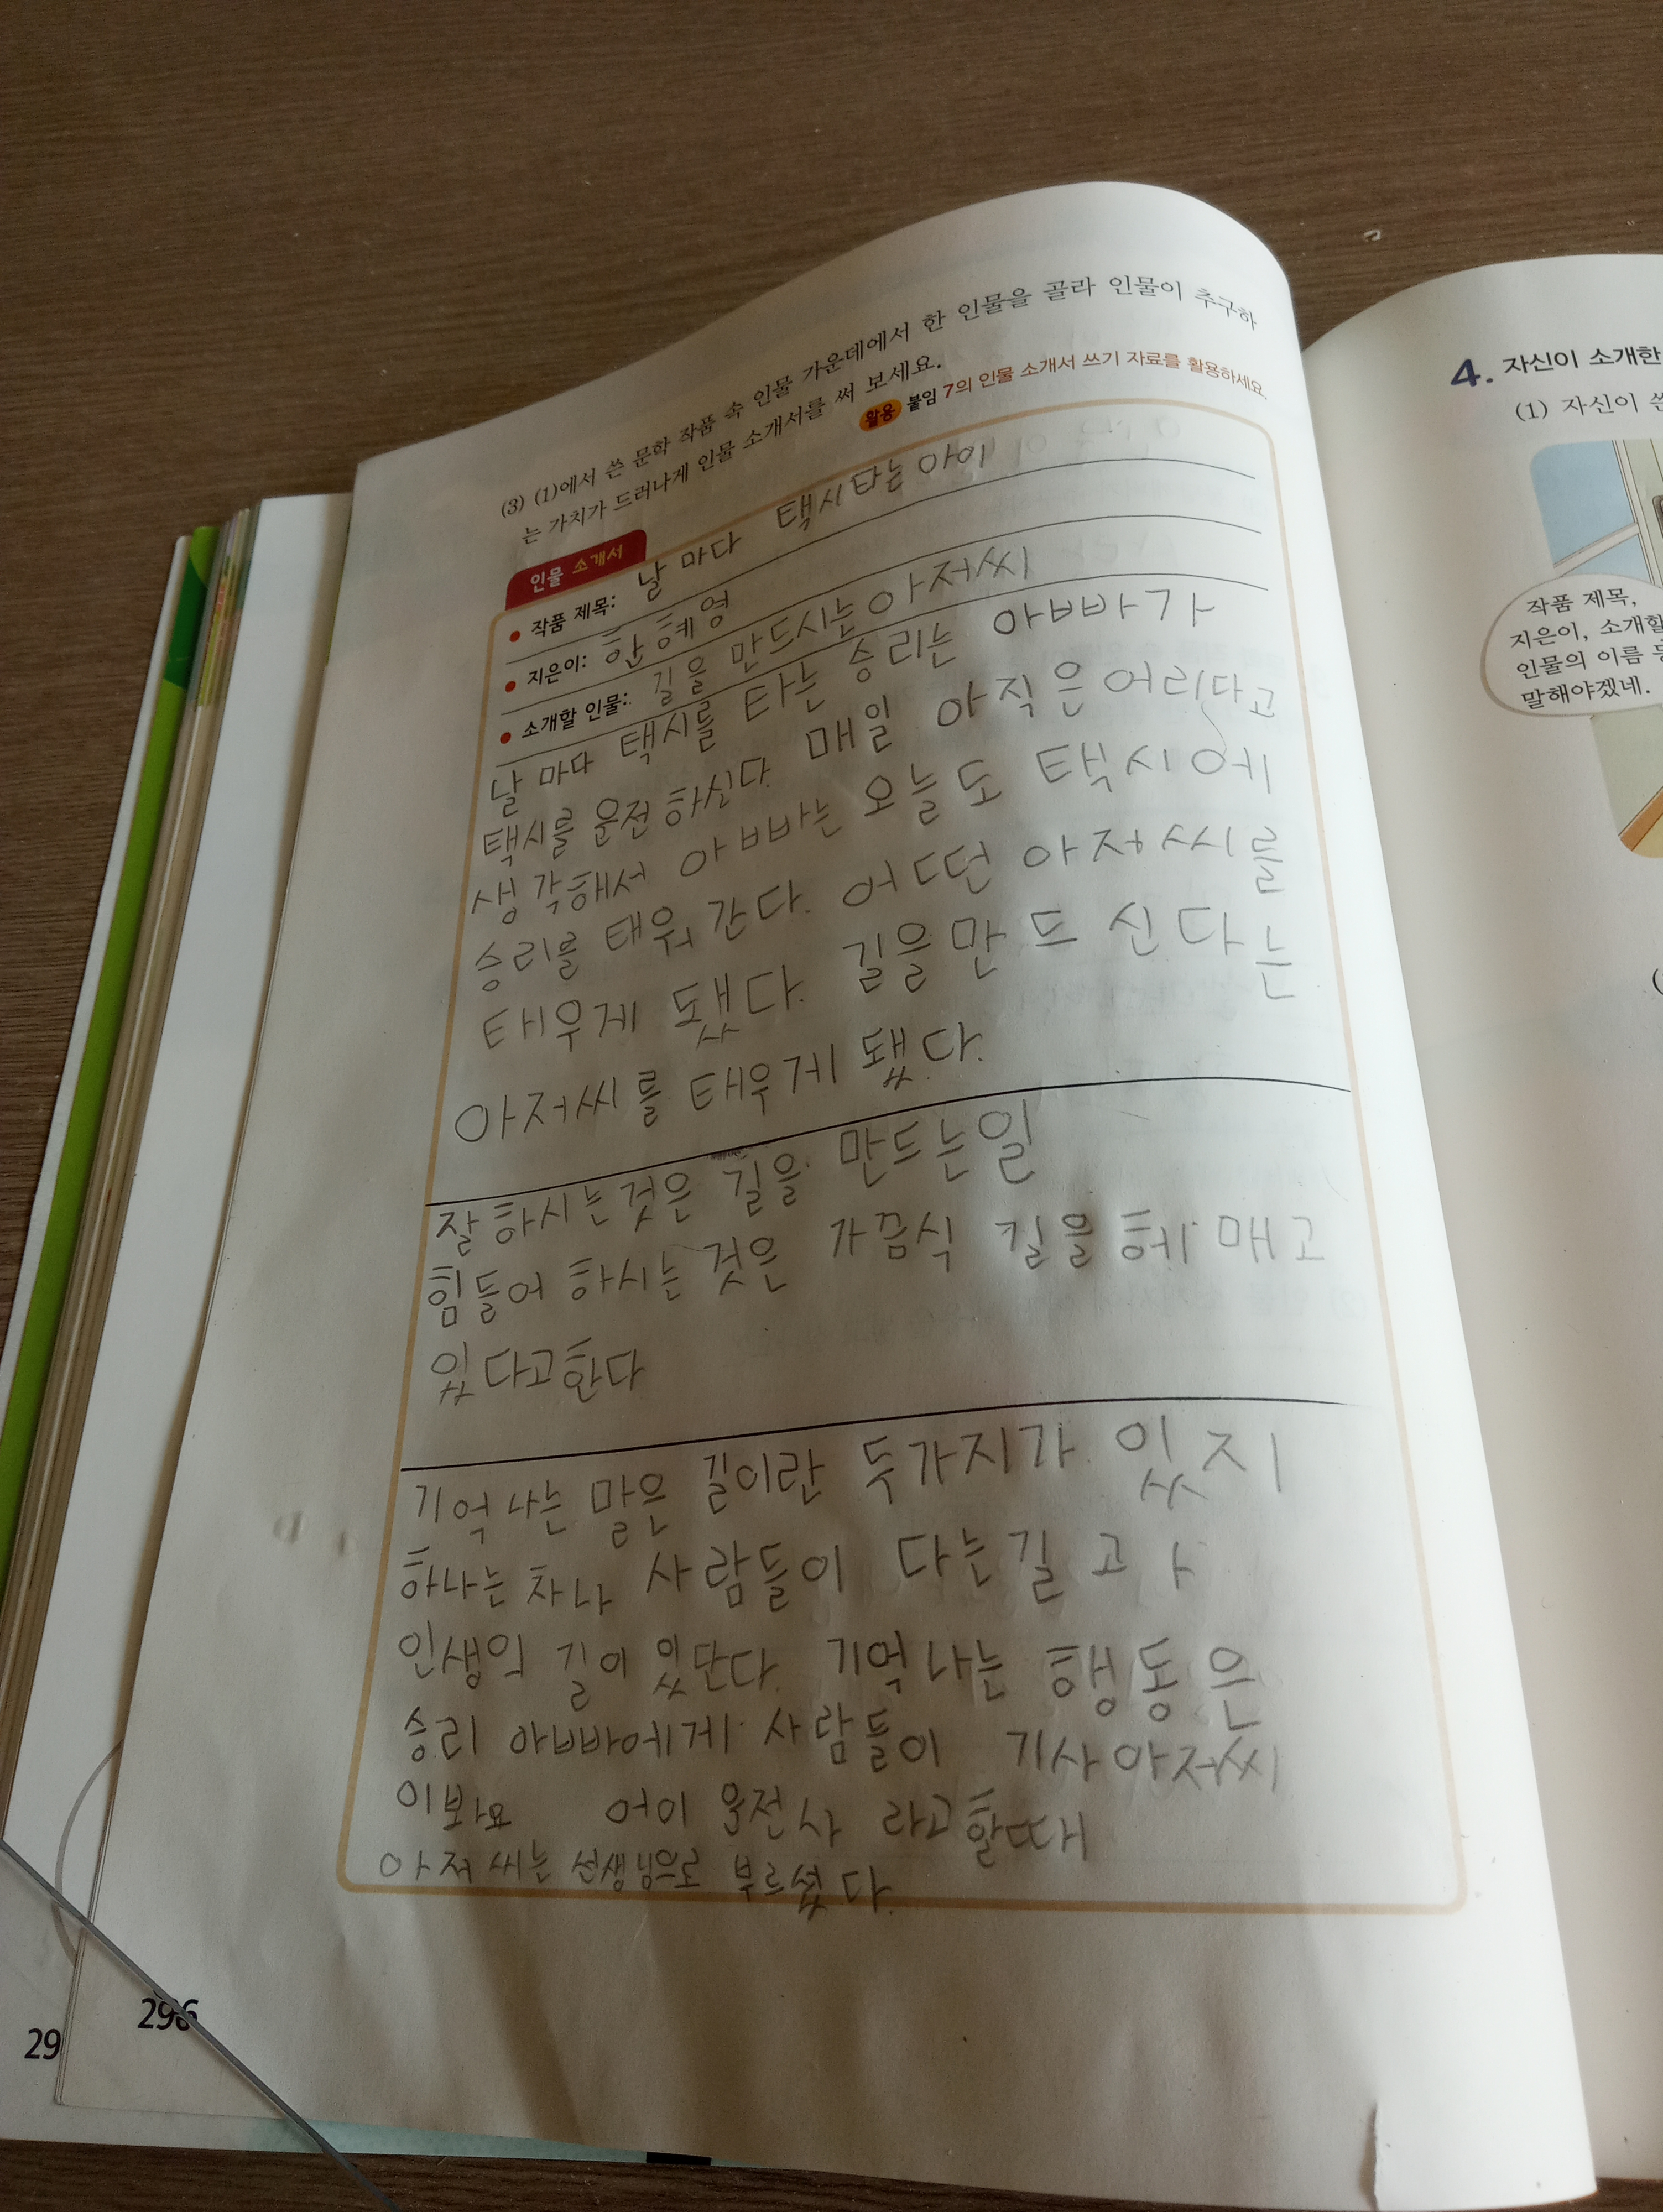 (3) (1)에서 쓴 문학 작품 속 인물 가운데에서 한 인물을 골라 인물이 추구하
는 가치가 드러나게 인물 소개서를 써 보세요.
활용 붙임 7의 인물 소개서 쓰기 자료를 활용하세요.
인물 소개서
작품 제목: 날 마다 택시타는 아이
지은이: 한 혜 영
소개할 인물: 길을 만드시는 아저씨
날 마다 택시를 타는 승리는 아빠가
택시를 운전 하신다. 매일 아직은 어리다고
생각해서 아빠는 오늘도 택시에
승리를 태워 간다. 어떤 아저씨를
태우게 됐다. 길을 만드 신다는
아저씨를 태우게 됐다.
잘 하시는것은 길을 만드는일
힘들어 하시는 것은 가끔식 길을 헤매고
있다고한다
기억 나는 말은 길이란 두가지가 있지
하나는 차나 사람들이 다는길 고 ㅏ
인생의 길이 있단다. 기억나는 행동은
승리 아빠에게 사람들이 기사아저씨
이봐요 어이 운전사 라고 할때
아저씨는 선생님으로 부르셨다.
296
29
4. 자신이 소개한
(1) 자신이 쓴
작품 제목,
지은이, 소개할
인물의 이름 등
말해야겠네.